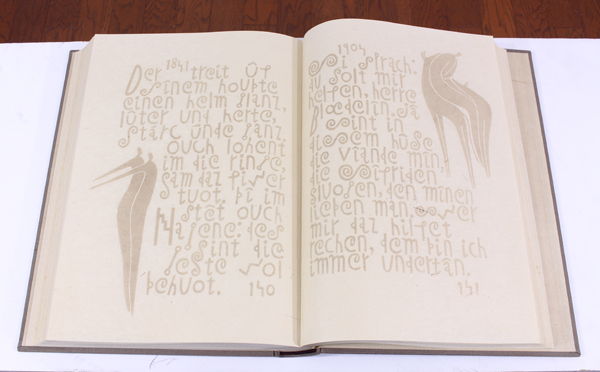 1841
Der treit Uf
sinem houpte
einen helm glanz,
luter und herte,
starc unde ganz
ouch lohent
im die ringe,
sam daz fiwer
tuot. bi im
stet ouch
Hagene: des
sint die
geste wol
behuot. 140
1904
Si sprach:
du solt mir
helfen, herre
Blœdelin. Ja
sint in
disem huse
die viande min,
die Sifriden
sluogen, den minen
lieben man. swer
mir daz hilfet
rechen, dem bin ich
immer undertan.
141